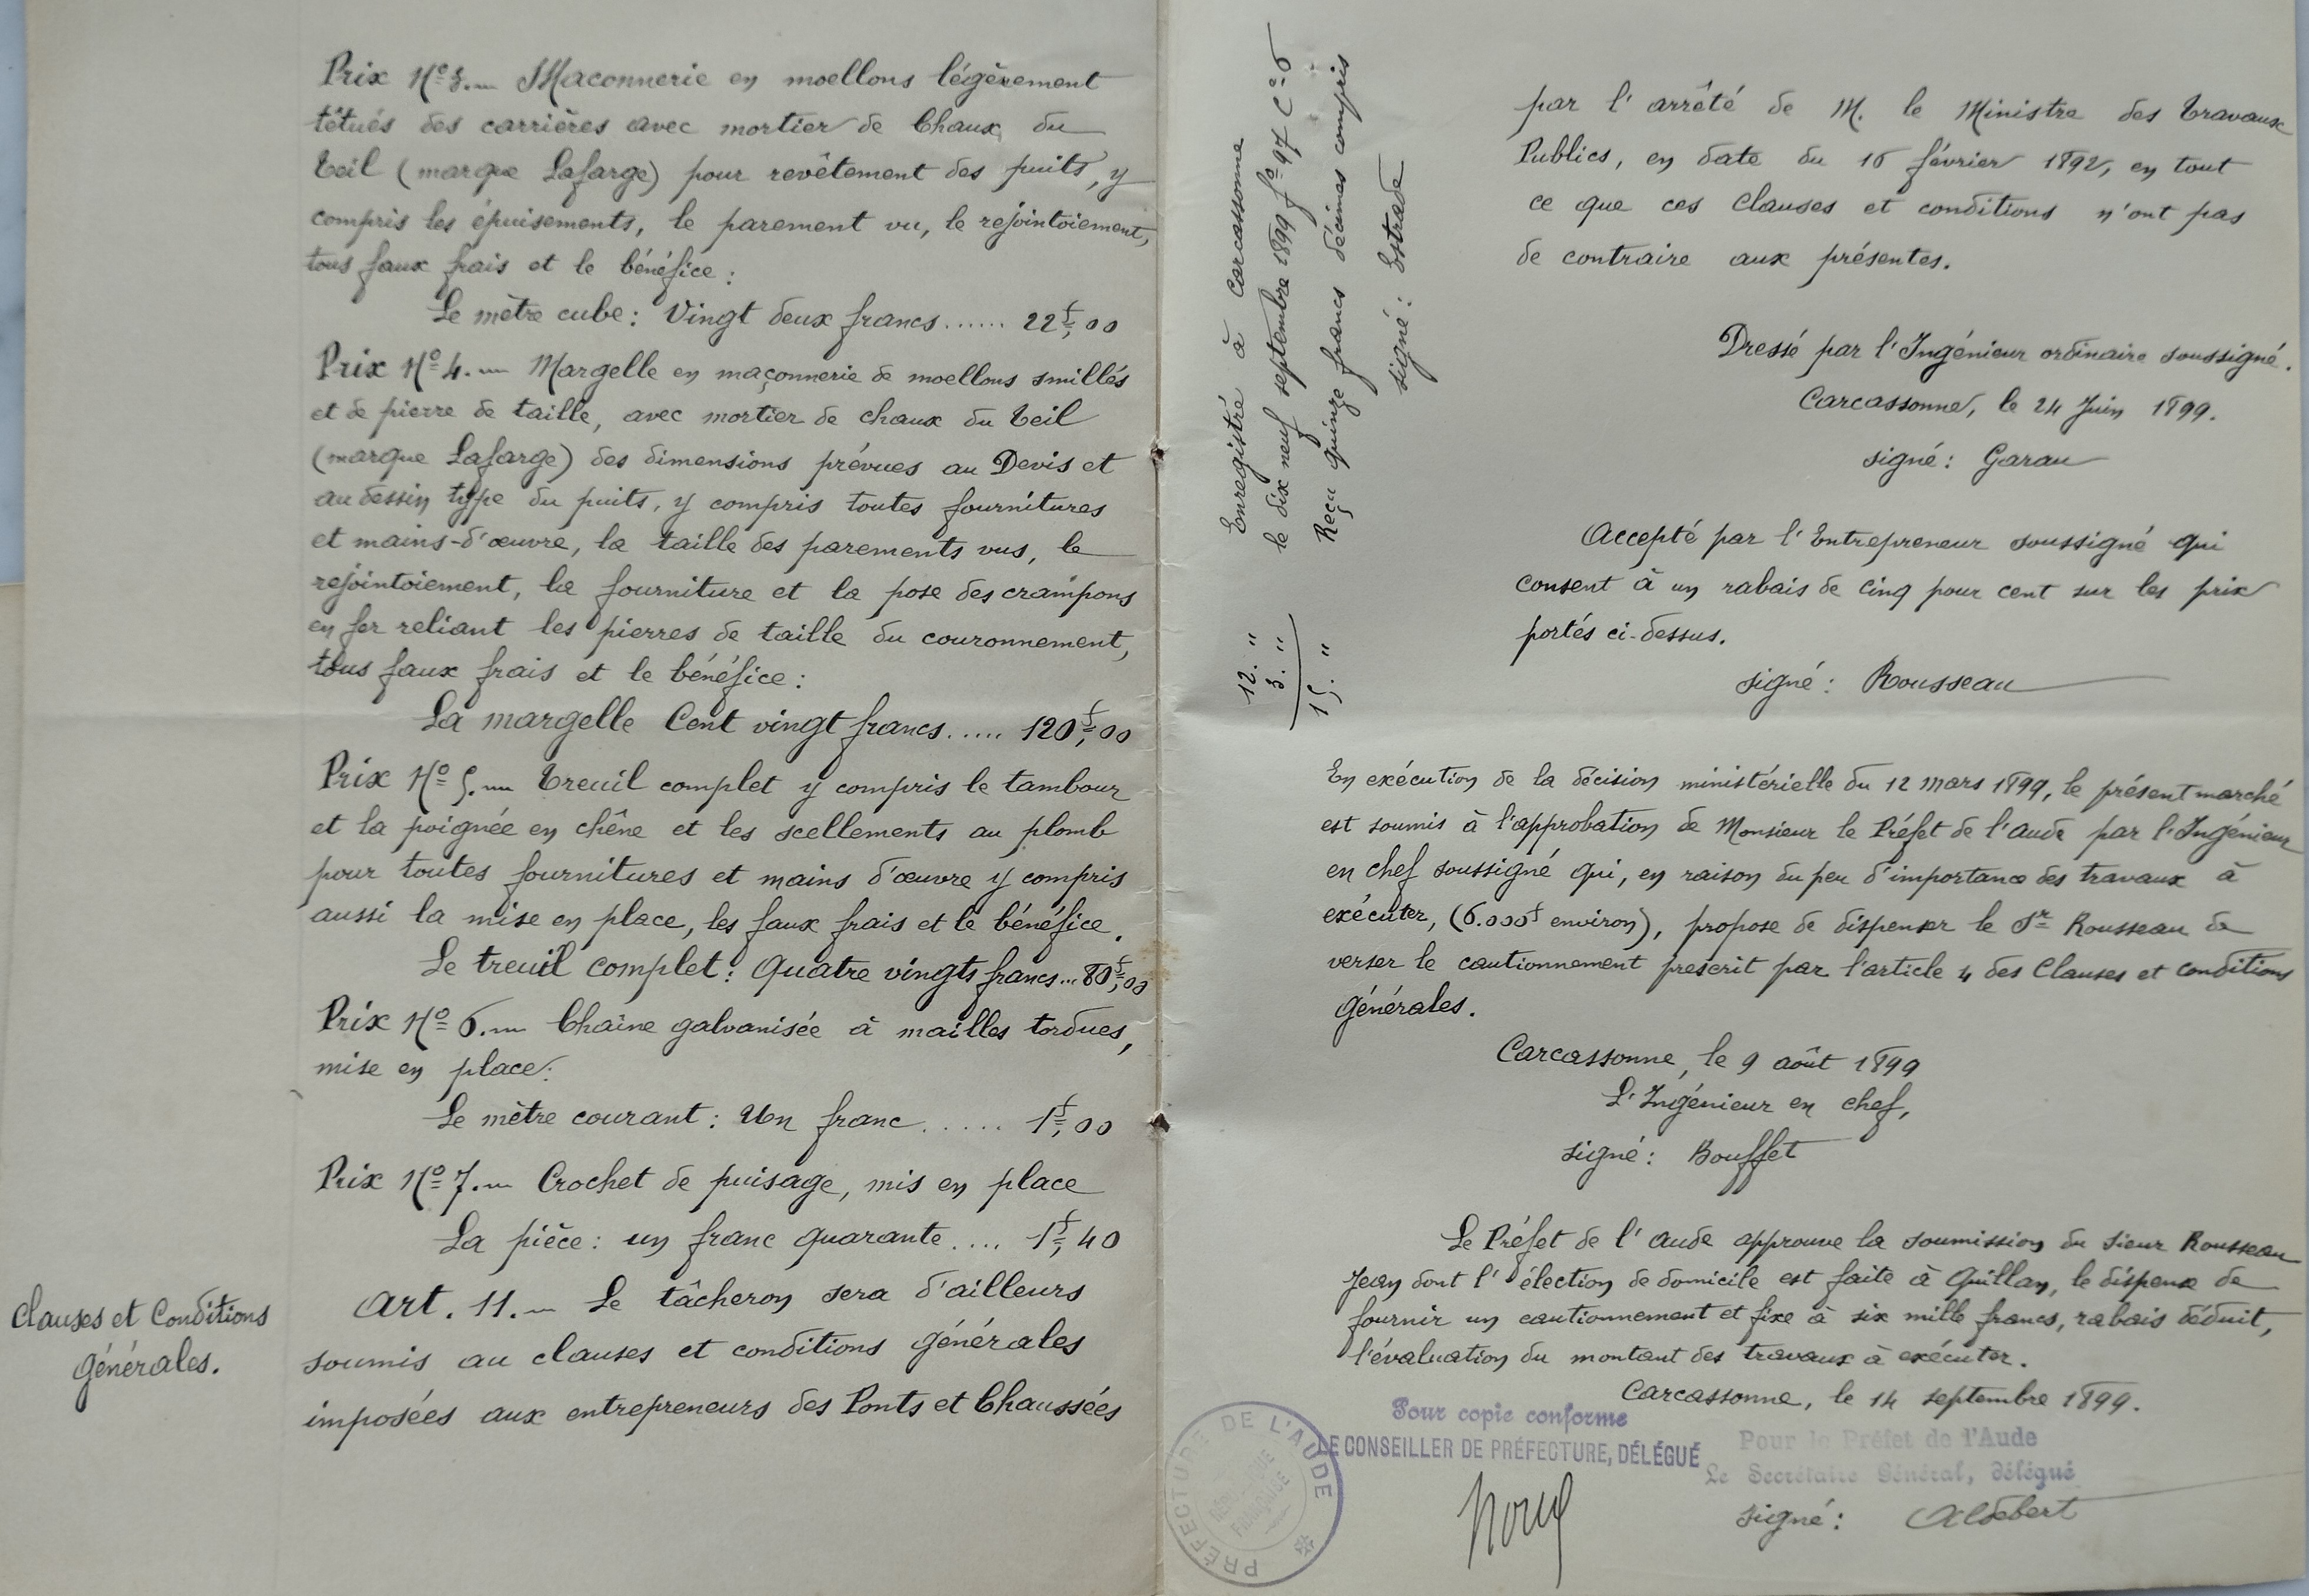 Prix Nº 3. — Maconnerie en moellons légèrement
têtués des carrières avec mortier de Chaux du
Teil (marque Lafarge) pour revêtement des puits, y
compris les épuisements, le parement vu, le rejointoiement,
tous faux frais et le bénéfice :
Le mètre cube : Vingt deux francs ...... 22f,00
Prix Nº 4. — Margelle en maçonnerie de moellons smillés
et de pierre de taille, avec mortier de chaux du Teil
(marque Lafarge) des dimensions prévues au Devis et
au dessin type du puits, y compris toutes fournitures
et mains-d'œuvre, la taille des parements vus, le
rejointoiement, la fourniture et la pose des crampons
en fer reliant les pierres de taille du couronnement,
tous faux frais et le bénéfice :
La margelle Cent vingt francs ..... 120f,00
Prix Nº 5. — Treuil complet y compris le tambour
et la poignée en chêne et les scellements au plomb
pour toutes fournitures et mains d'œuvre y compris
aussi la mise en place, les faux frais et le bénéfice.
Le treuil complet : Quatre vingts francs ... 80f,00
Prix Nº 6. — Chaîne galvanisée à mailles tordues,
mise en place :
Le mètre courant : Un franc ...... 1f,00
Prix Nº 7. — Crochet de puisage, mis en place
La pièce : un franc quarante .... 1f,40
Clauses et Conditions
Générales.
Art. 11. — Le tâcheron sera d'ailleurs
soumis au clauses et conditions générales
imposées aux entrepreneurs des Ponts et Chaussées
Enregistré à Carcassonne
le dix neuf septembre 1899 fº 97 Cº 6
Reçu quinze francs décimes compris
signé : Estrade
12. "
3. "
15. "
par l'arrêté de M. le Ministre des Travaux
Publics, en date du 16 février 1892, en tout
ce que ces Clauses et conditions n'ont pas
de contraire aux présentes.
Dressé par l'Ingénieur ordinaire soussigné.
Carcassonne, le 24 Juin 1899.
signé : Garau
Accepté par l'Entrepreneur soussigné qui
consent à un rabais de cinq pour cent sur les prix
portés ci-dessus.
signé : Rousseau
En exécution de la décision ministérielle du 12 mars 1899, le présent marché
est soumis à l'approbation de Monsieur le Préfet de l'Aude par l'Ingénieur
en chef soussigné qui, en raison du peu d'importance des travaux à
exécuter, (6.000f environ), propose de dispenser le Sr Rousseau de
verser le cautionnement prescrit par l'article 4 des Clauses et conditions
générales.
Carcassonne, le 9 août 1899
L'Ingénieur en chef,
signé : Bouffet
Le Préfet de l'Aude approuve la soumission du sieur Rousseau
Jean dont l'élection de domicile est faite à Quillan, le dispense de
fournir un cautionnement et fixe à six mille francs, rabais déduit,
l'évaluation du montant des travaux à exécuter.
Carcassonne, le 14 septembre 1899.
Pour copie conforme
LE CONSEILLER DE PRÉFECTURE, DÉLÉGUÉ
Pour le Préfet de l'Aude
Le Secrétaire Général, délégué
signé : Aldebert
PRÉFECTURE DE L'AUDE
RÉPUBLIQUE
FRANÇAISE